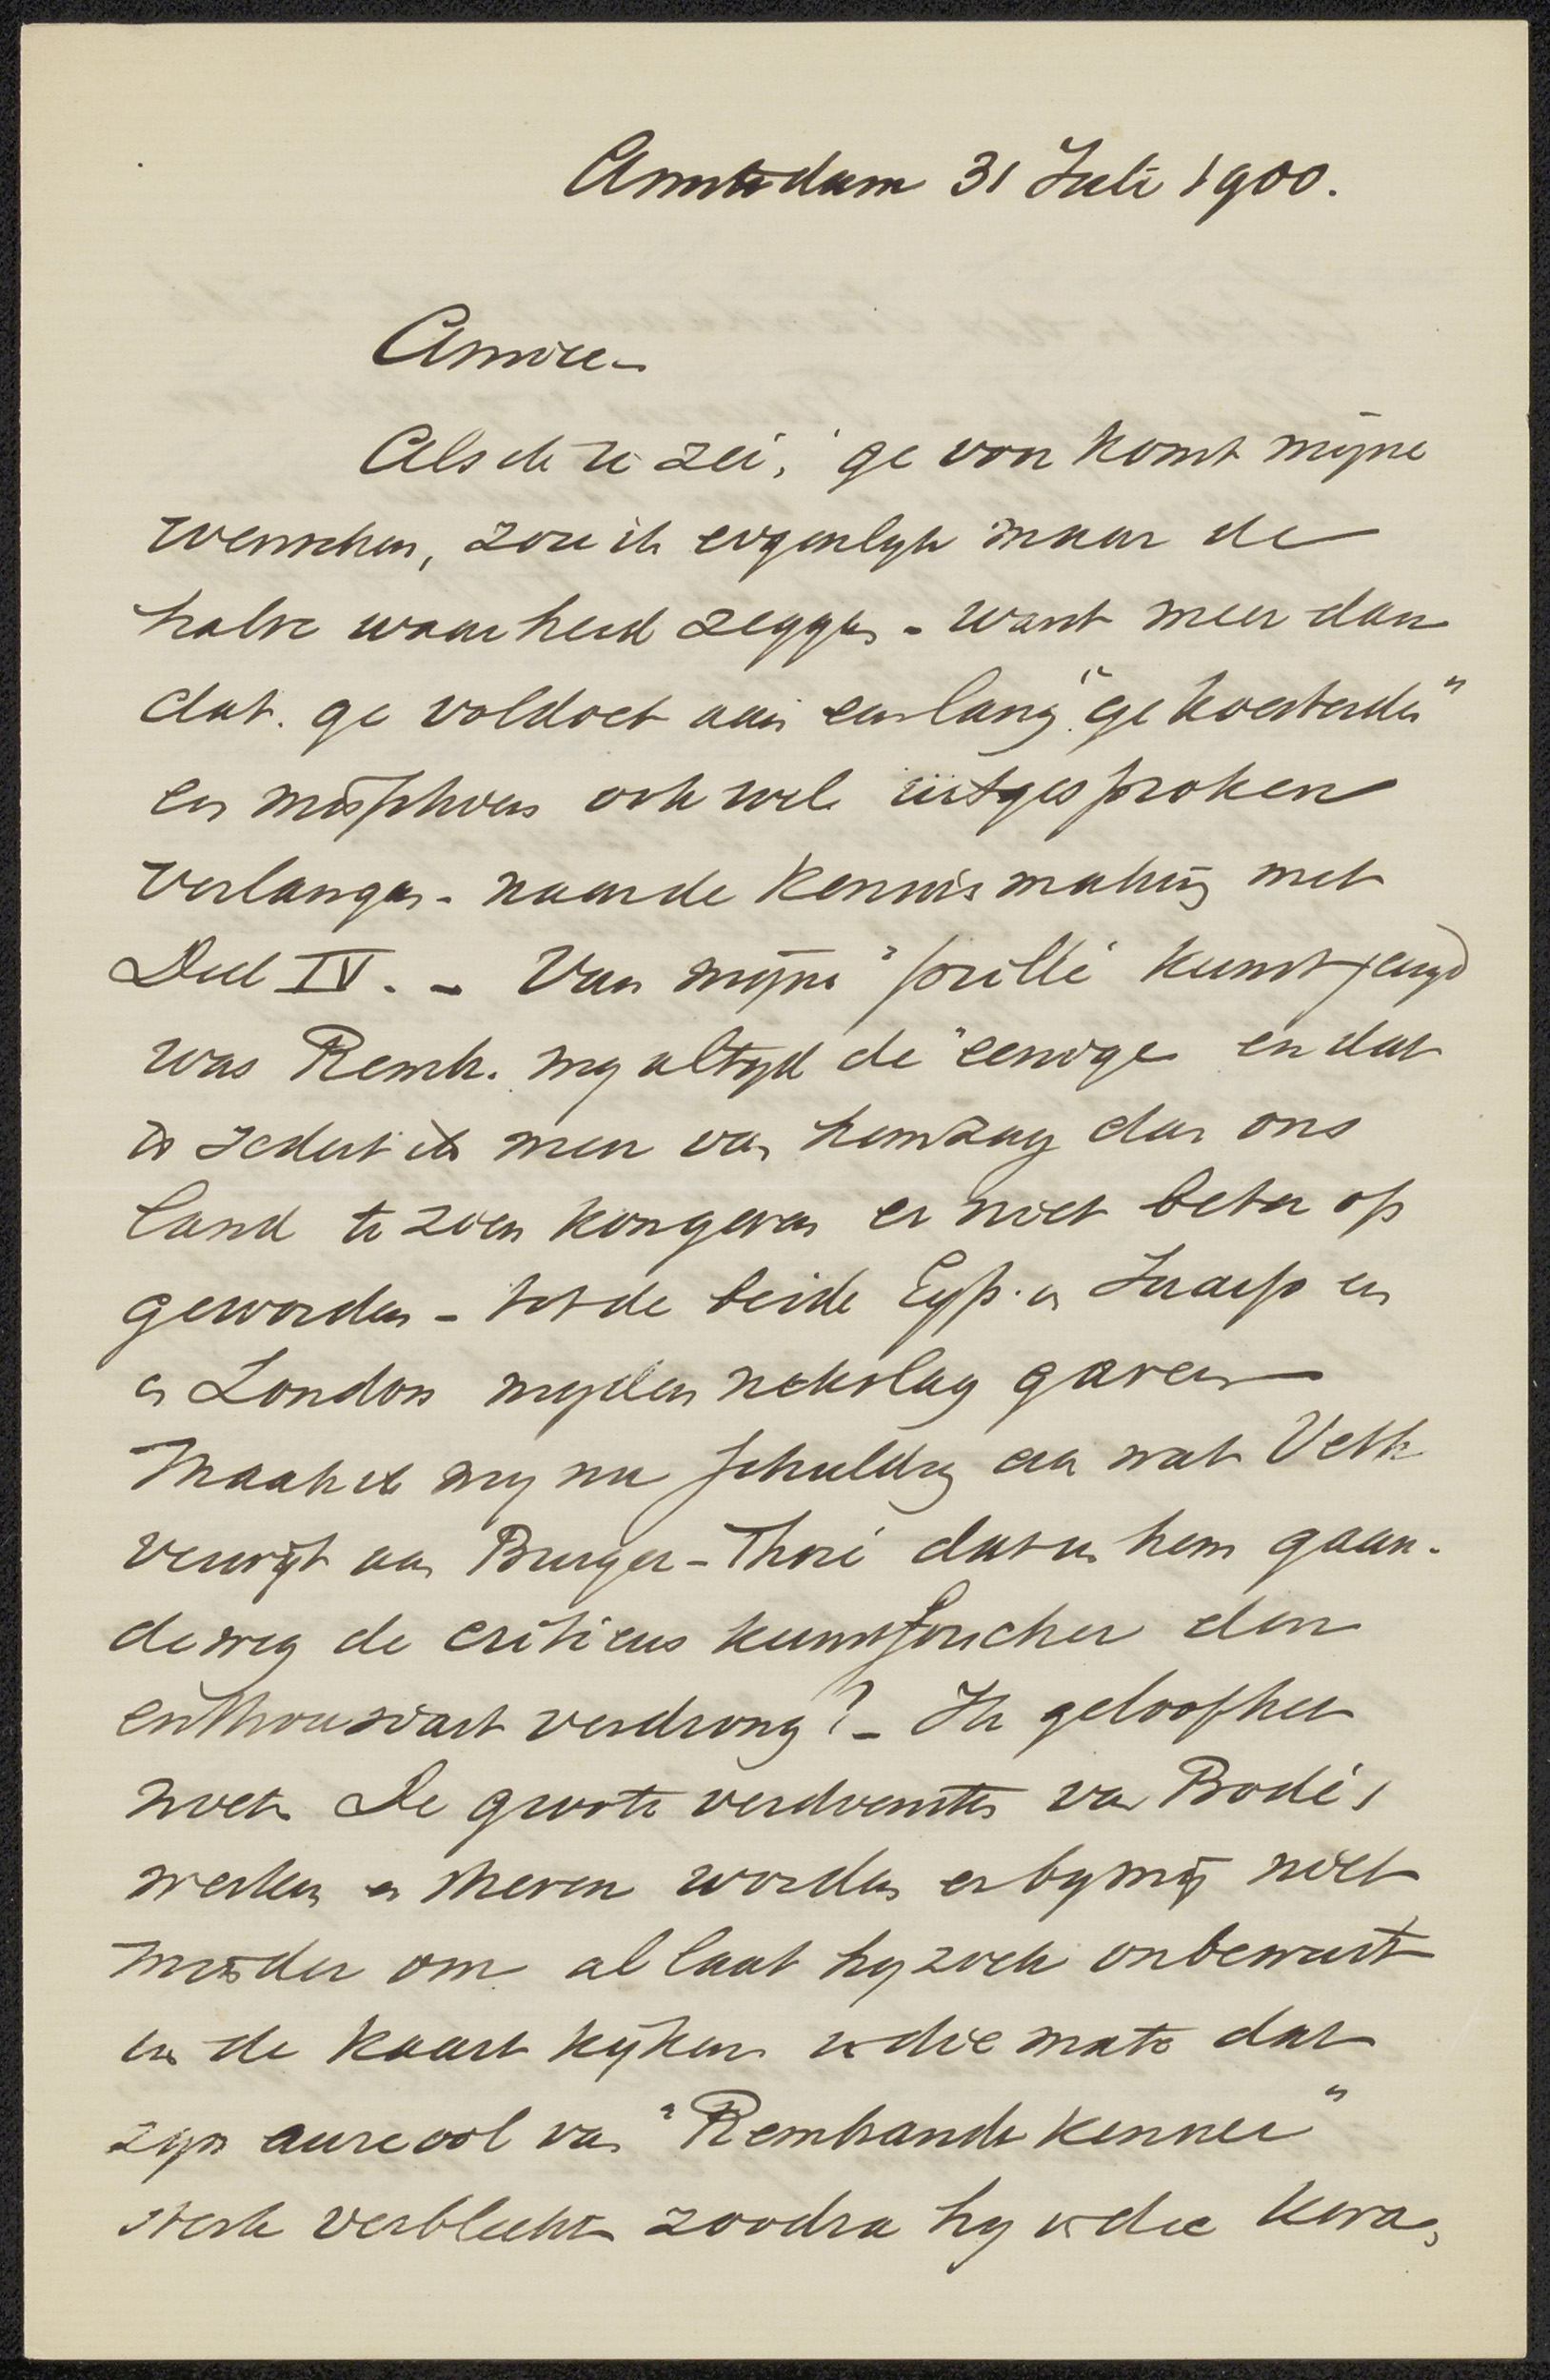 Amsterdam 31 Juli 1900.
Amice -
Als ik U zei, ge voorkomt mijne
wenschen, zou ik eigenlijk maar de
halve waarheid zeggen - want meer dan
dat. ge voldoet aan een lang "gekoesterden"
en misschien ook wel uitgesproken
verlangen - naar de kennismaking met
Deel IV. - Van mijne "prille" kunstjeugd
was Remb. mij altijd de "eenige" en dat
is sedert ik meer van hem zag dan ons
land te zien kon geven er niet beter op
geworden - tot de beide Exp. in en
en London mij den nekslag gaven
Maak ik mij nu schuldig aan wat Veth
verwijt aan Burger-Thoré dat in hem gaan-
deweg de criticus kunstforscher den
enthousiast verdrong? - Ik geloof het
niet. De groote verdiensten van Bode's
werken en streven worden er bij mij niet
minder om al laat hij zich onbewust
in de kaart kijken in die mate dat
zijn aureool van "Rembrandt kenner"
sterk verbleekt zoodra hij in die